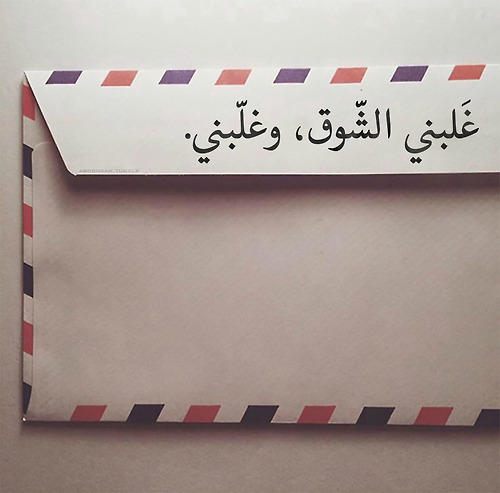 غَلبني الشّوق، وغلّبني.